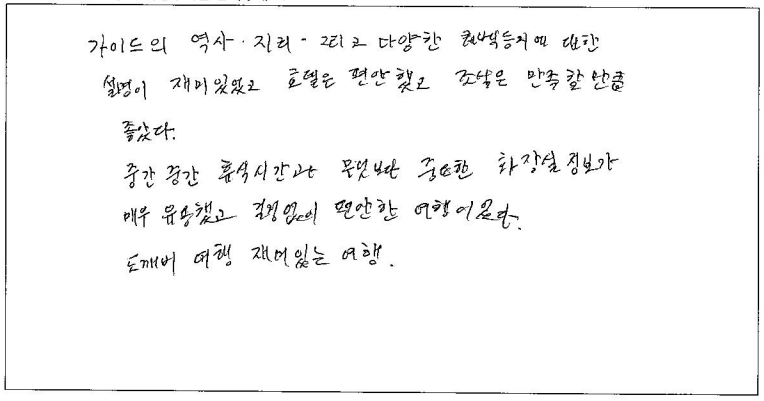 가이드의 역사·지리·그리고 다양한 대한
설명이 재미있었고 호텔은 편안했고 조식은 만족할 만큼
좋았다.
중간 중간 휴식시간과 무엇보다 중요한 화장실 정보가
매우 유용했고 걱정없이 편안한 여행이었다.
도깨비 여행 재미있는 여행.